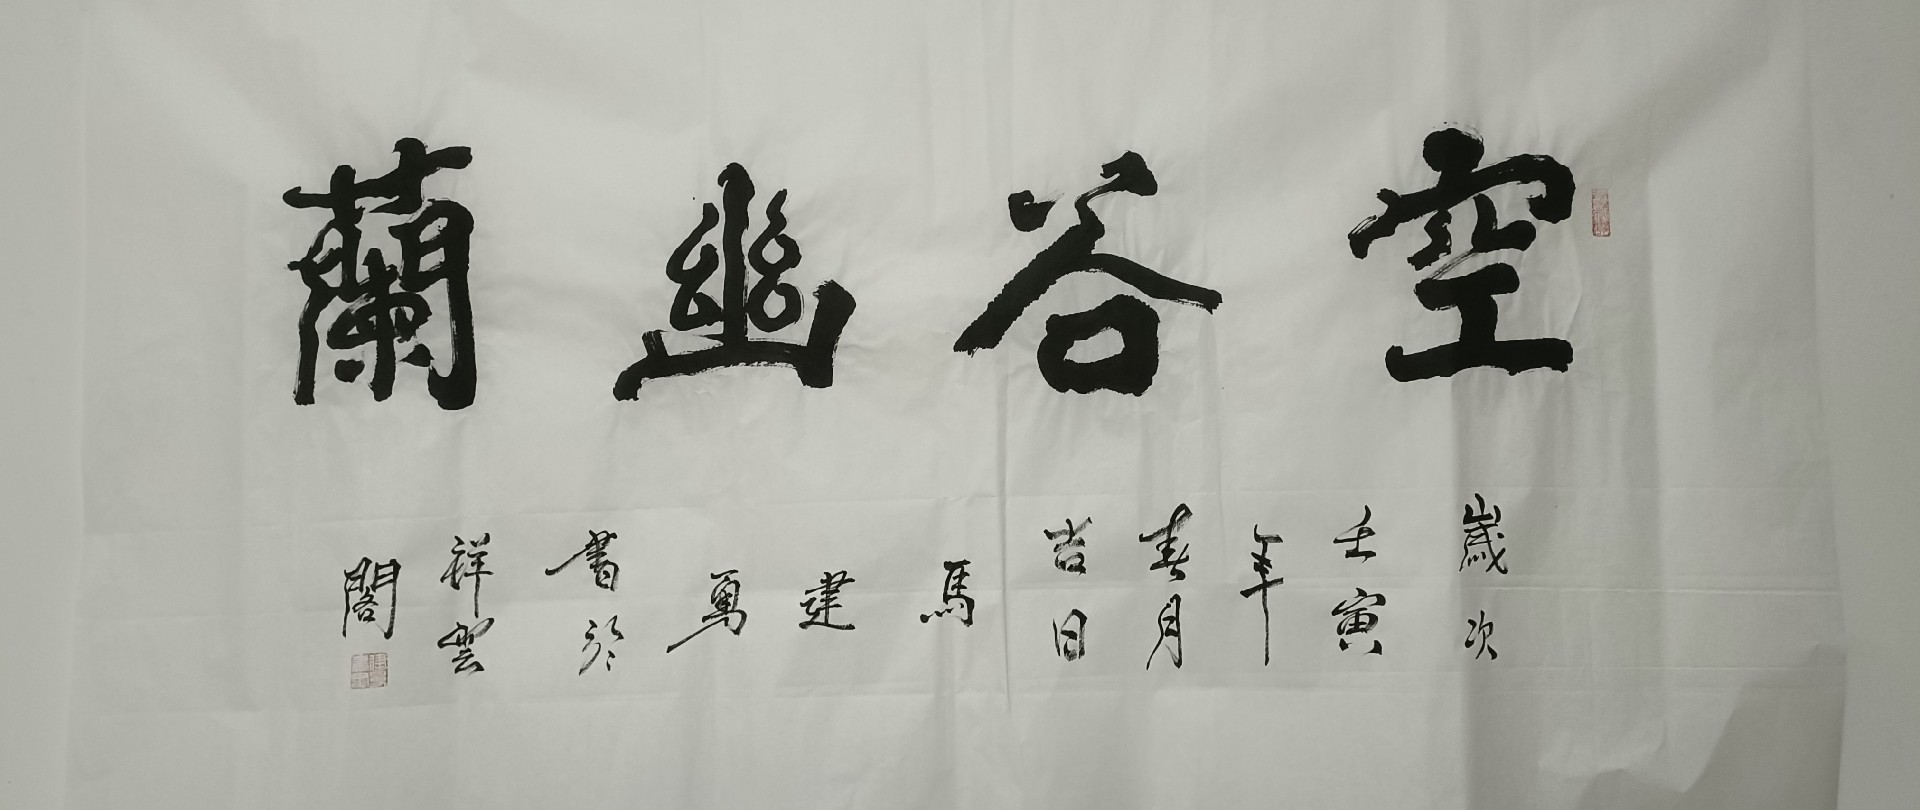 空谷幽蘭
歲次壬寅年春月吉日馬建勇書於祥雲閣